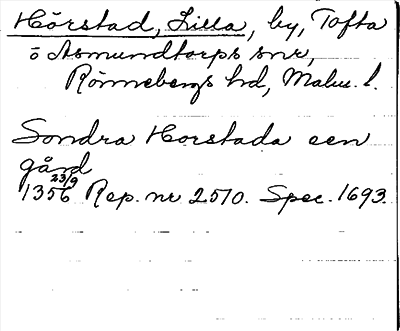 Hörstad, Lilla, by, Tofta
o Asmundtorps snr,
Rönnebergs hd, Malm. l.
Sondra Horstada een
gård
1356 23/9 Rep. nr 2510. Spec. 1693.